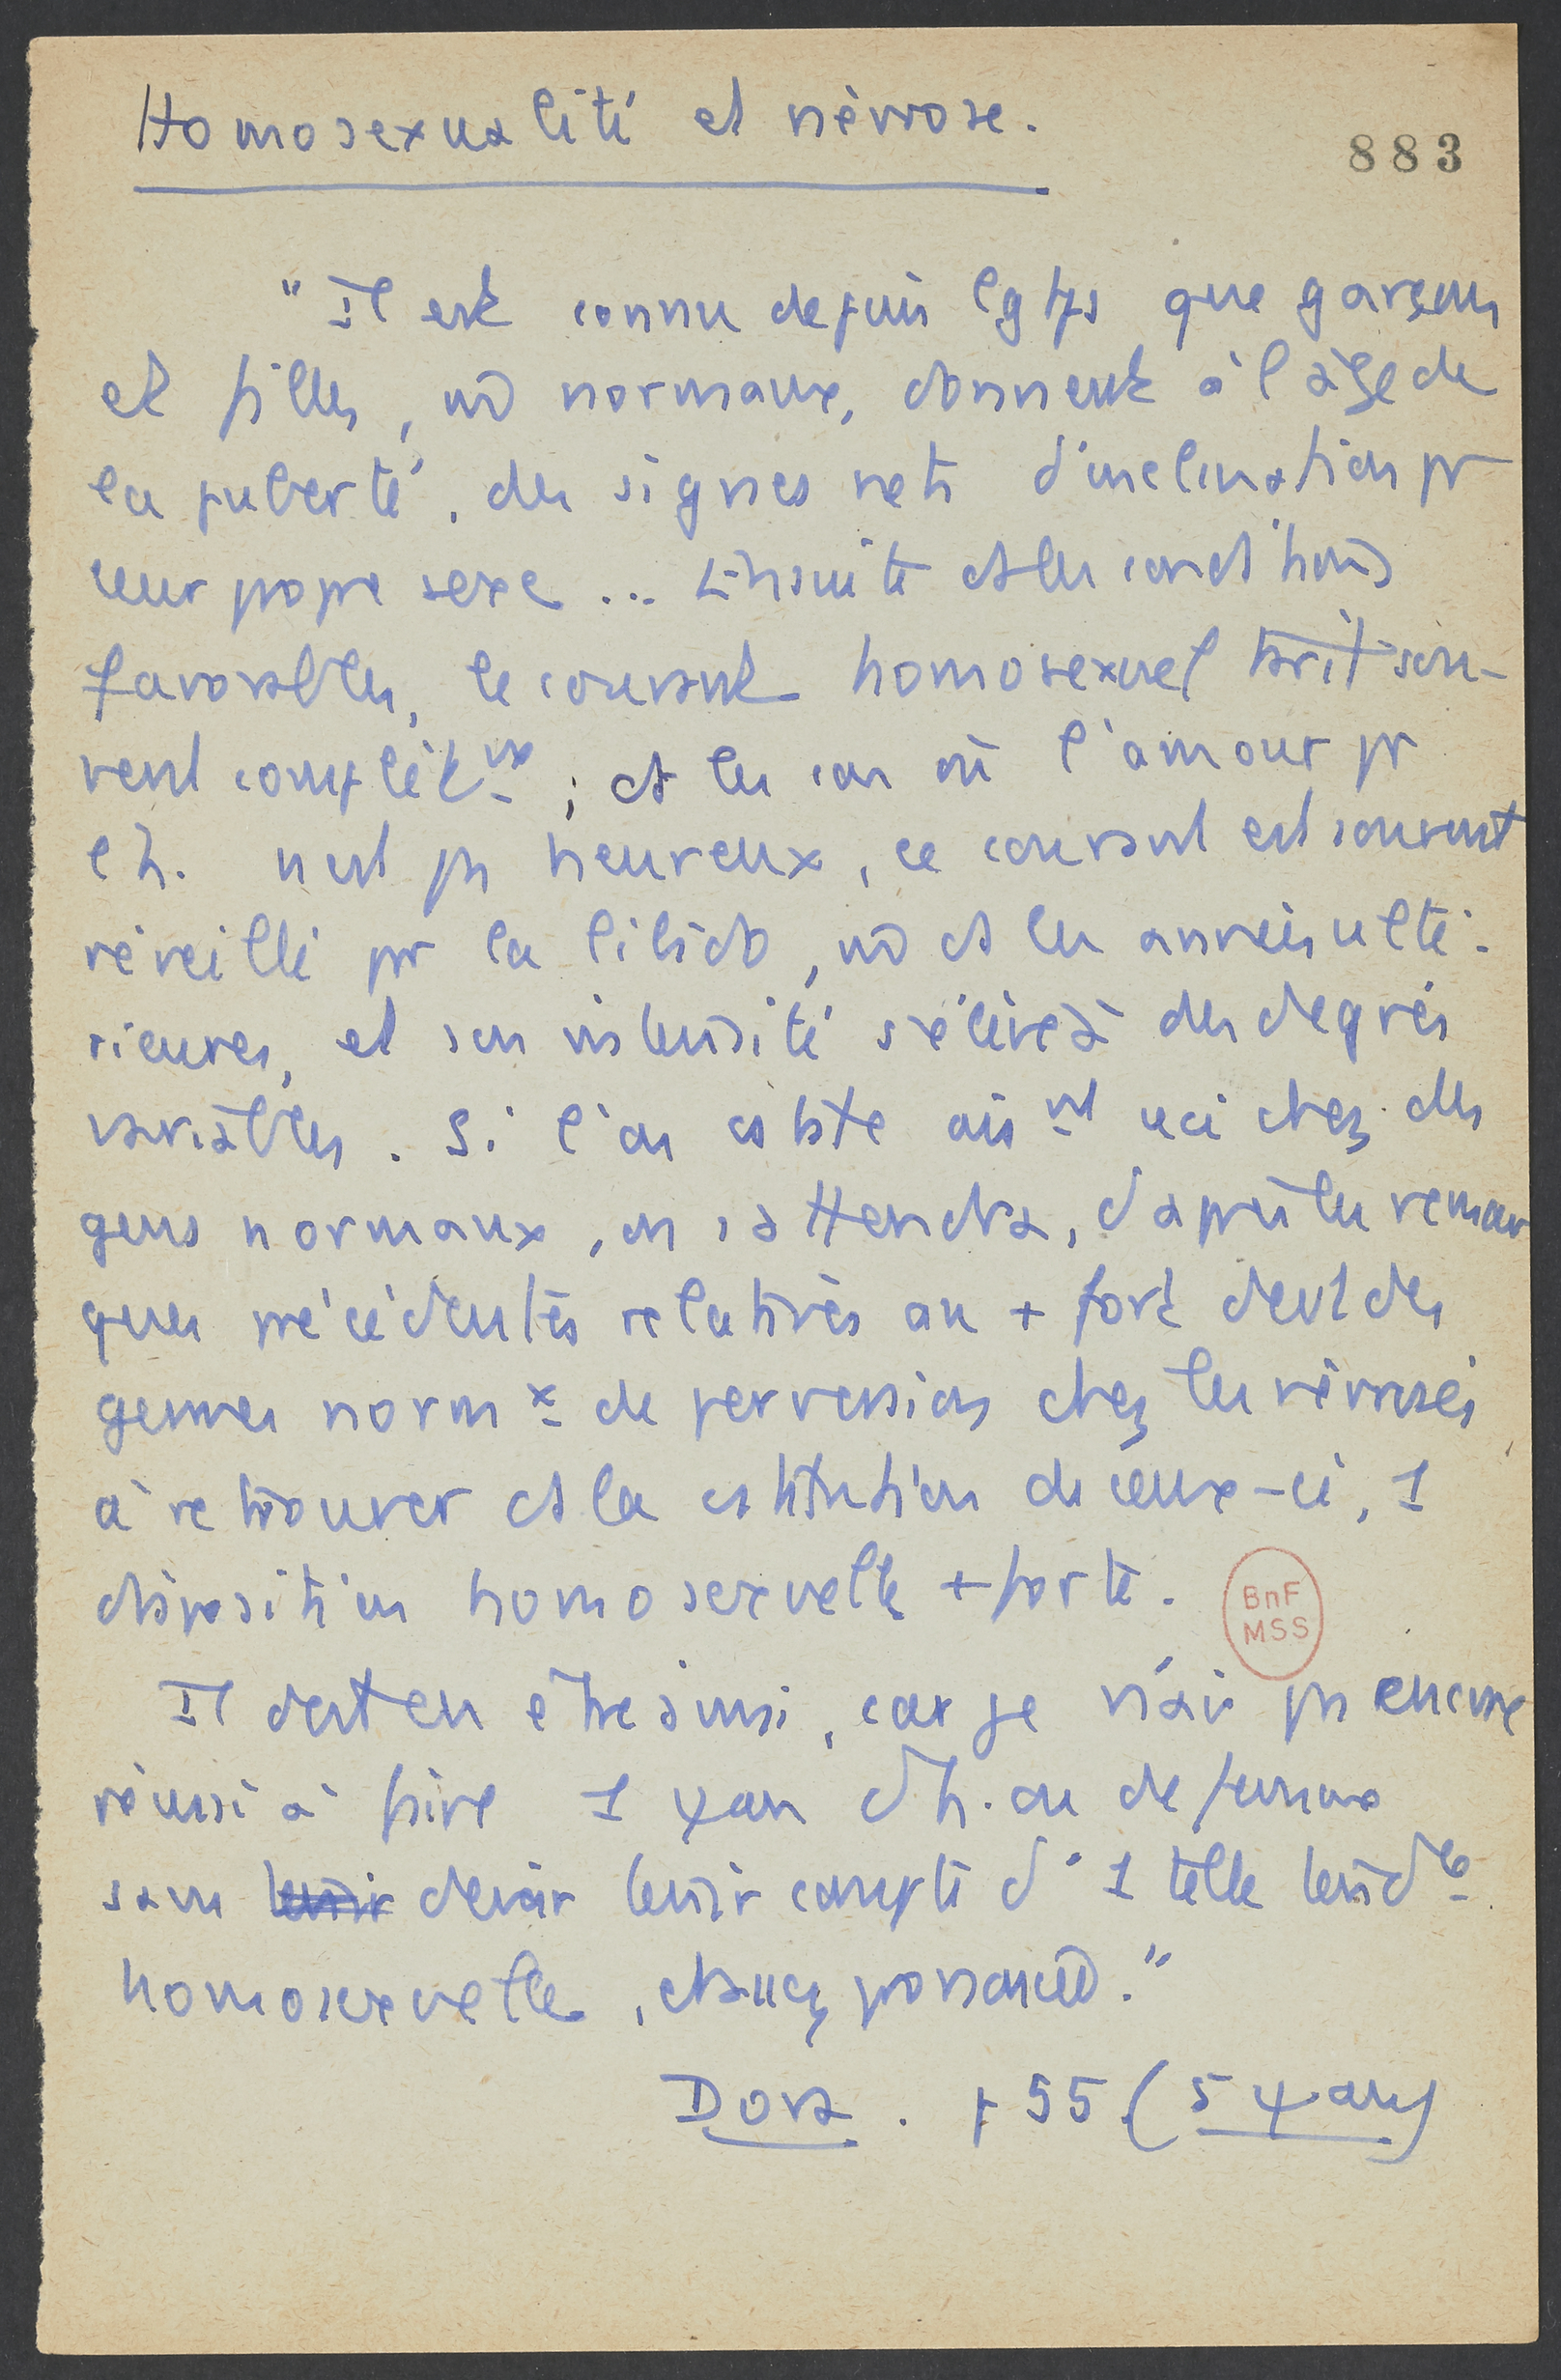 Homosexualité et névrose.
883
"Il est connu depuis lgtps que garçons
et filles, m̂ normaux, donnent à l'âge de
la puberté, des signes nets d'inclination pr
leur propre sexe... Ensuite ds les conditions
favorables, le courant homosexuel tarit sou-
vent complètt ; ds les cas où l'amour pr
l'h. n'est pas heureux, ce courant est souvent
réveillé par la libido, m̂ ds les années ulté-
rieures, et son intensité s'élève à des degrés
variables. Si l'on cstate aist ceci chez des
gens normaux, on s'attendra, d'après les remar
ques précédentes relatives au + fort devt des
germes normx de perversion chez les névrosés
à retrouver ds la cstitution de ceux-ci, 1
disposition homosexuelle + forte.
BnF
MSS
Il doit en être ainsi, car je n'ai pas encore
réussi à faire 1 ψan d'h. ou de femme
sans tenir devoir tenir compte d'1 telle tendce
homosexuelle, assez prononcée."
Dora . p 55 (5 ψans)